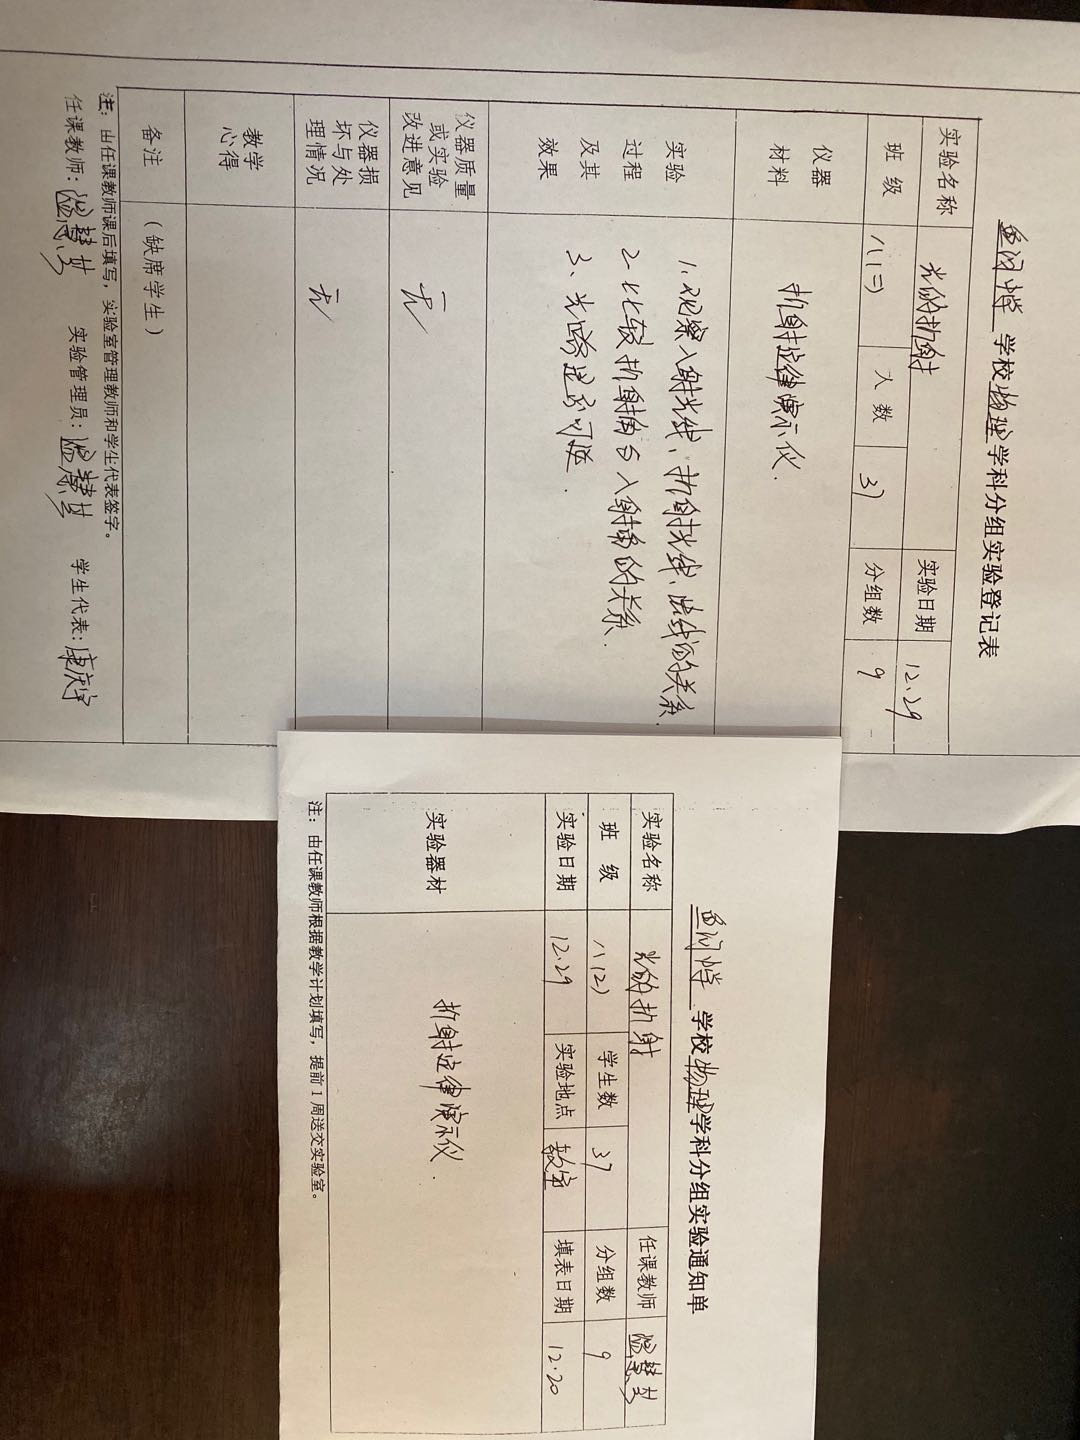 学校物理学科分组实验登记表
实验名称 光的折射 实验日期 12.29
班 级 八(二) 人 数 37 分组数 9
仪器材料 折射定律演示仪.
实验过程及其效果
1、观察入射光线、折射光线、法线的关系.
2、比较折射角与入射角的关系.
3、光路是否可逆.
仪器质量或实验改进意见 无
仪器损坏与处理情况 无
教学心得
备注 (缺席学生)
注: 由任课教师课后填写, 实验室管理教师和学生代表签字。
任课教师: 实验管理员: 学生代表: 康庆宇
学校物理学科分组实验通知单
实验名称 光的折射 任课教师
班 级 八(2) 学生数 37 分组数 9
实验日期 12.29 实验地点 教室 填表日期 12.20
实验器材 折射定律演示仪.
注: 由任课教师根据教学计划填写, 提前1周送交实验室。